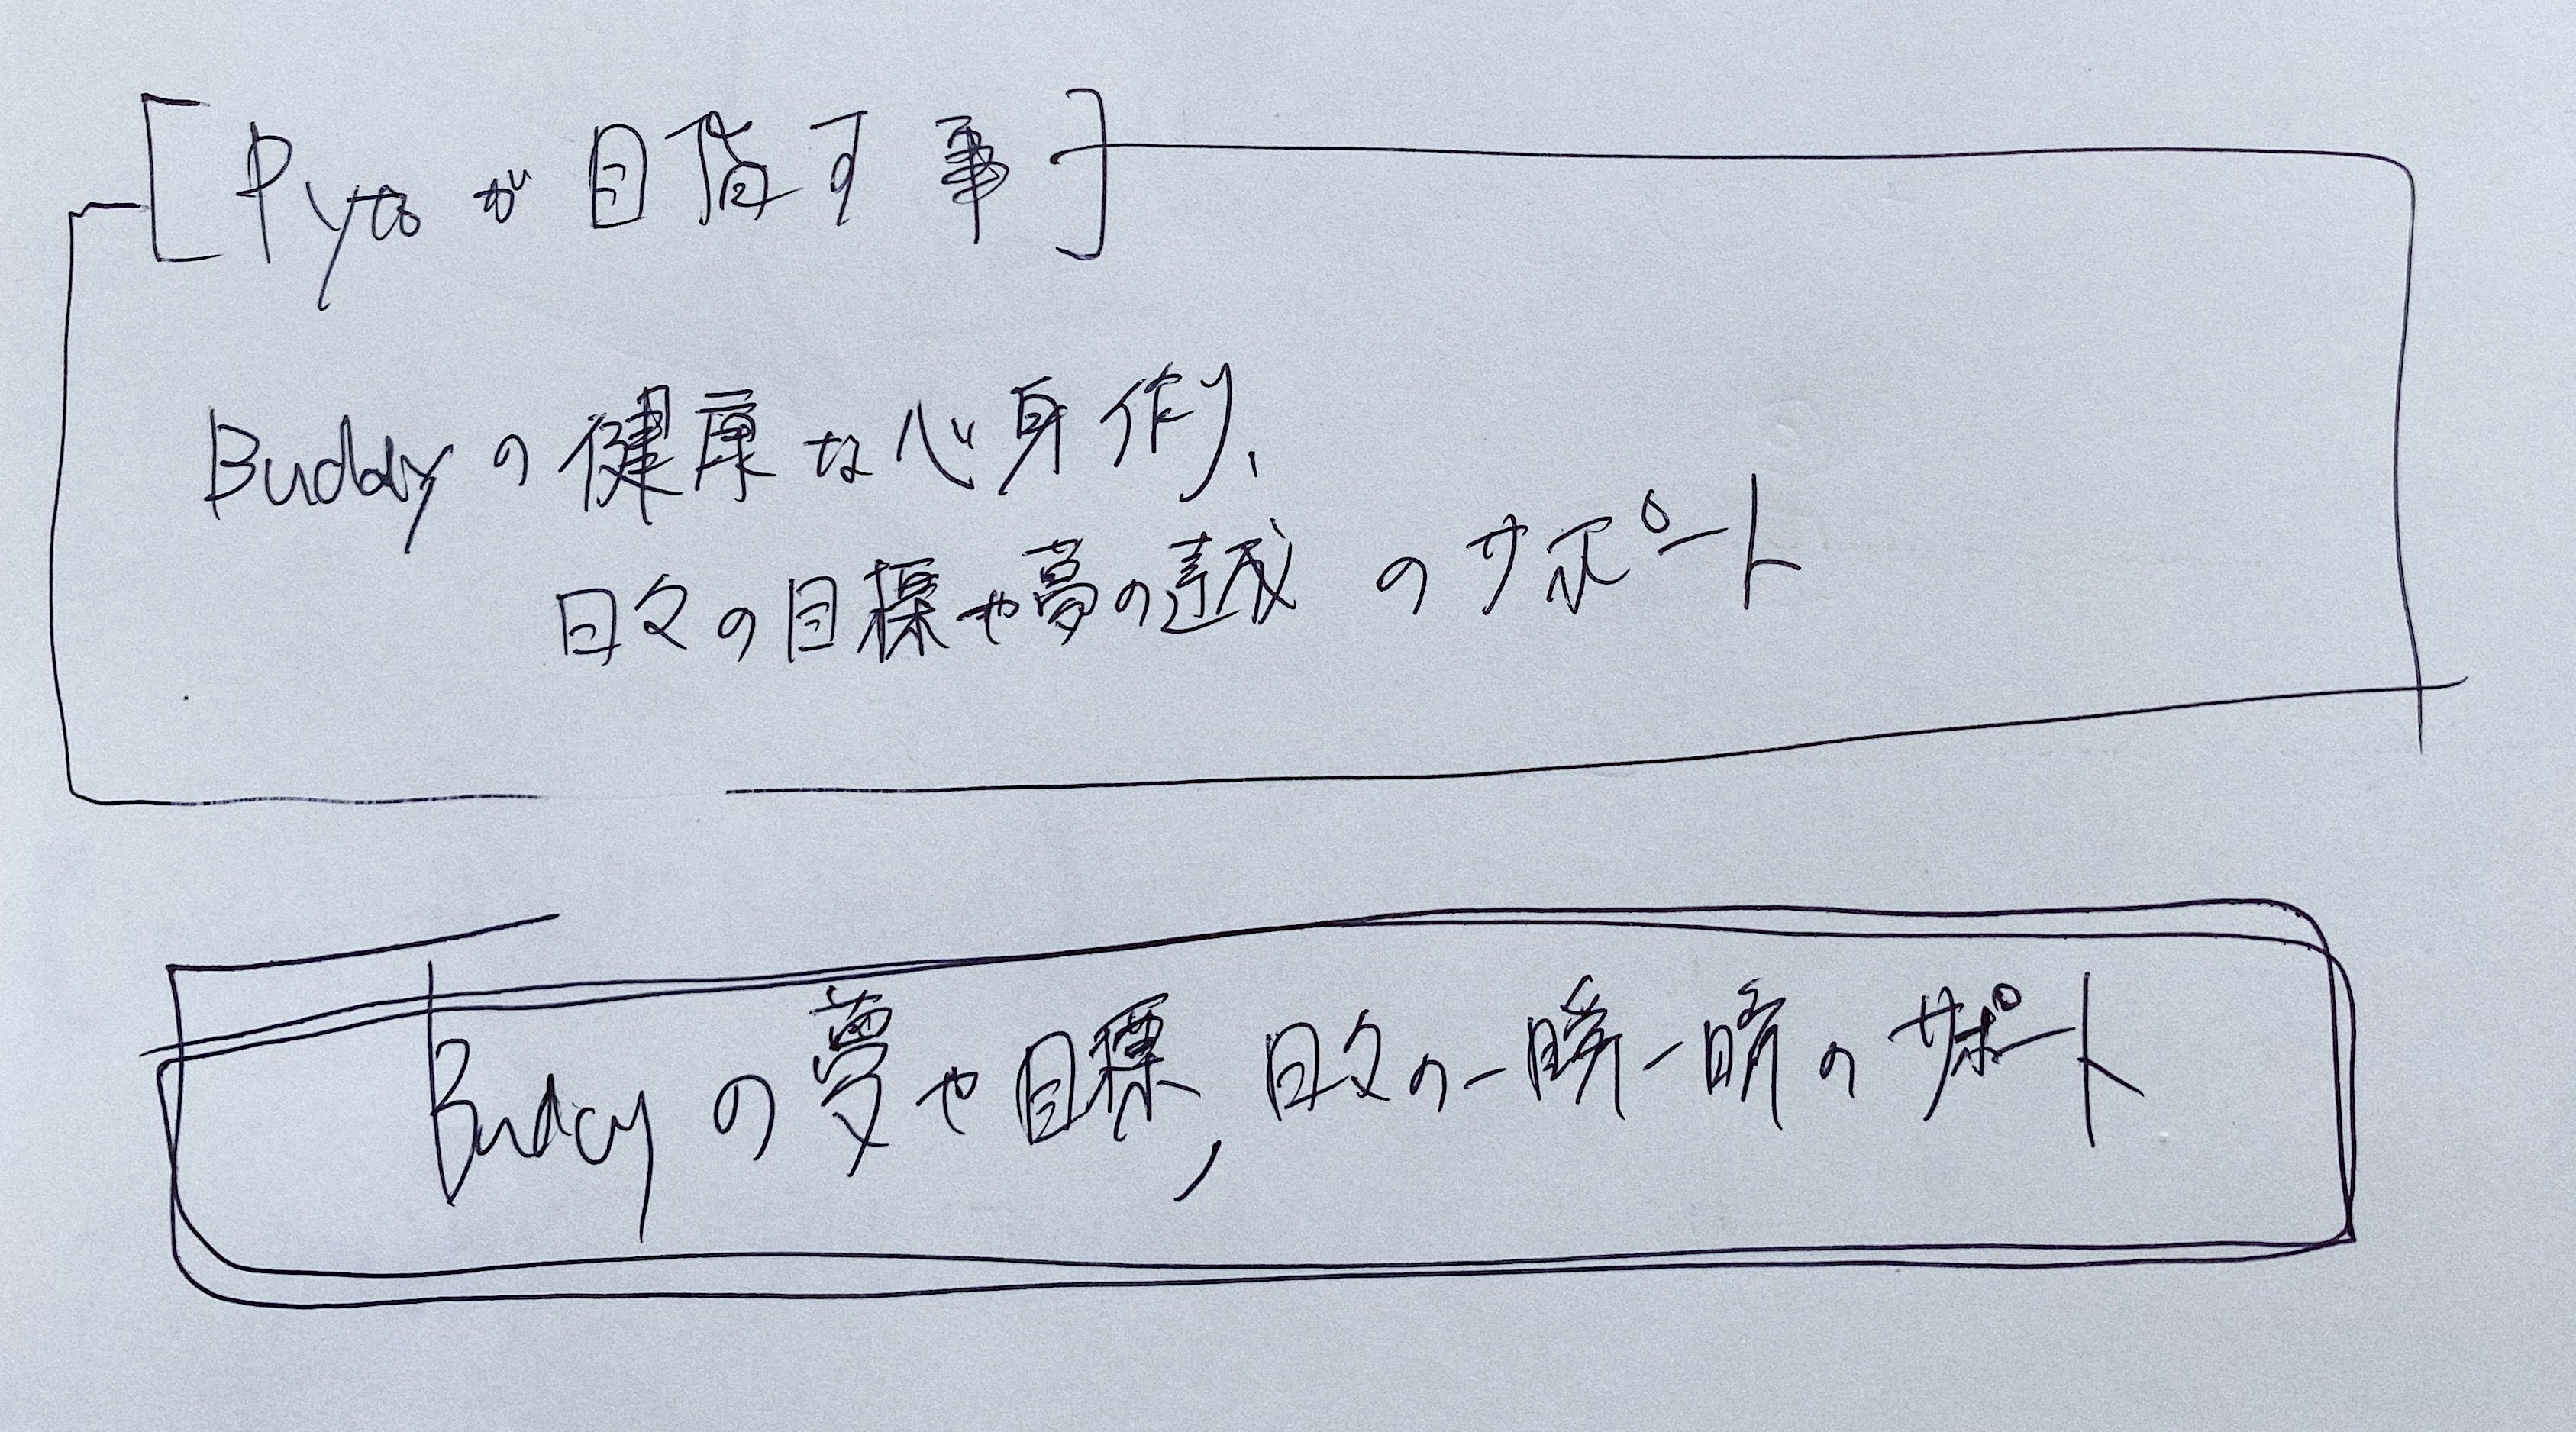 [Pytoが目指す事]
Buddyの健康な心身作り、
日々の目標や夢の達成のサポート
Buddyの夢や目標, 日々の一瞬一瞬のサポート